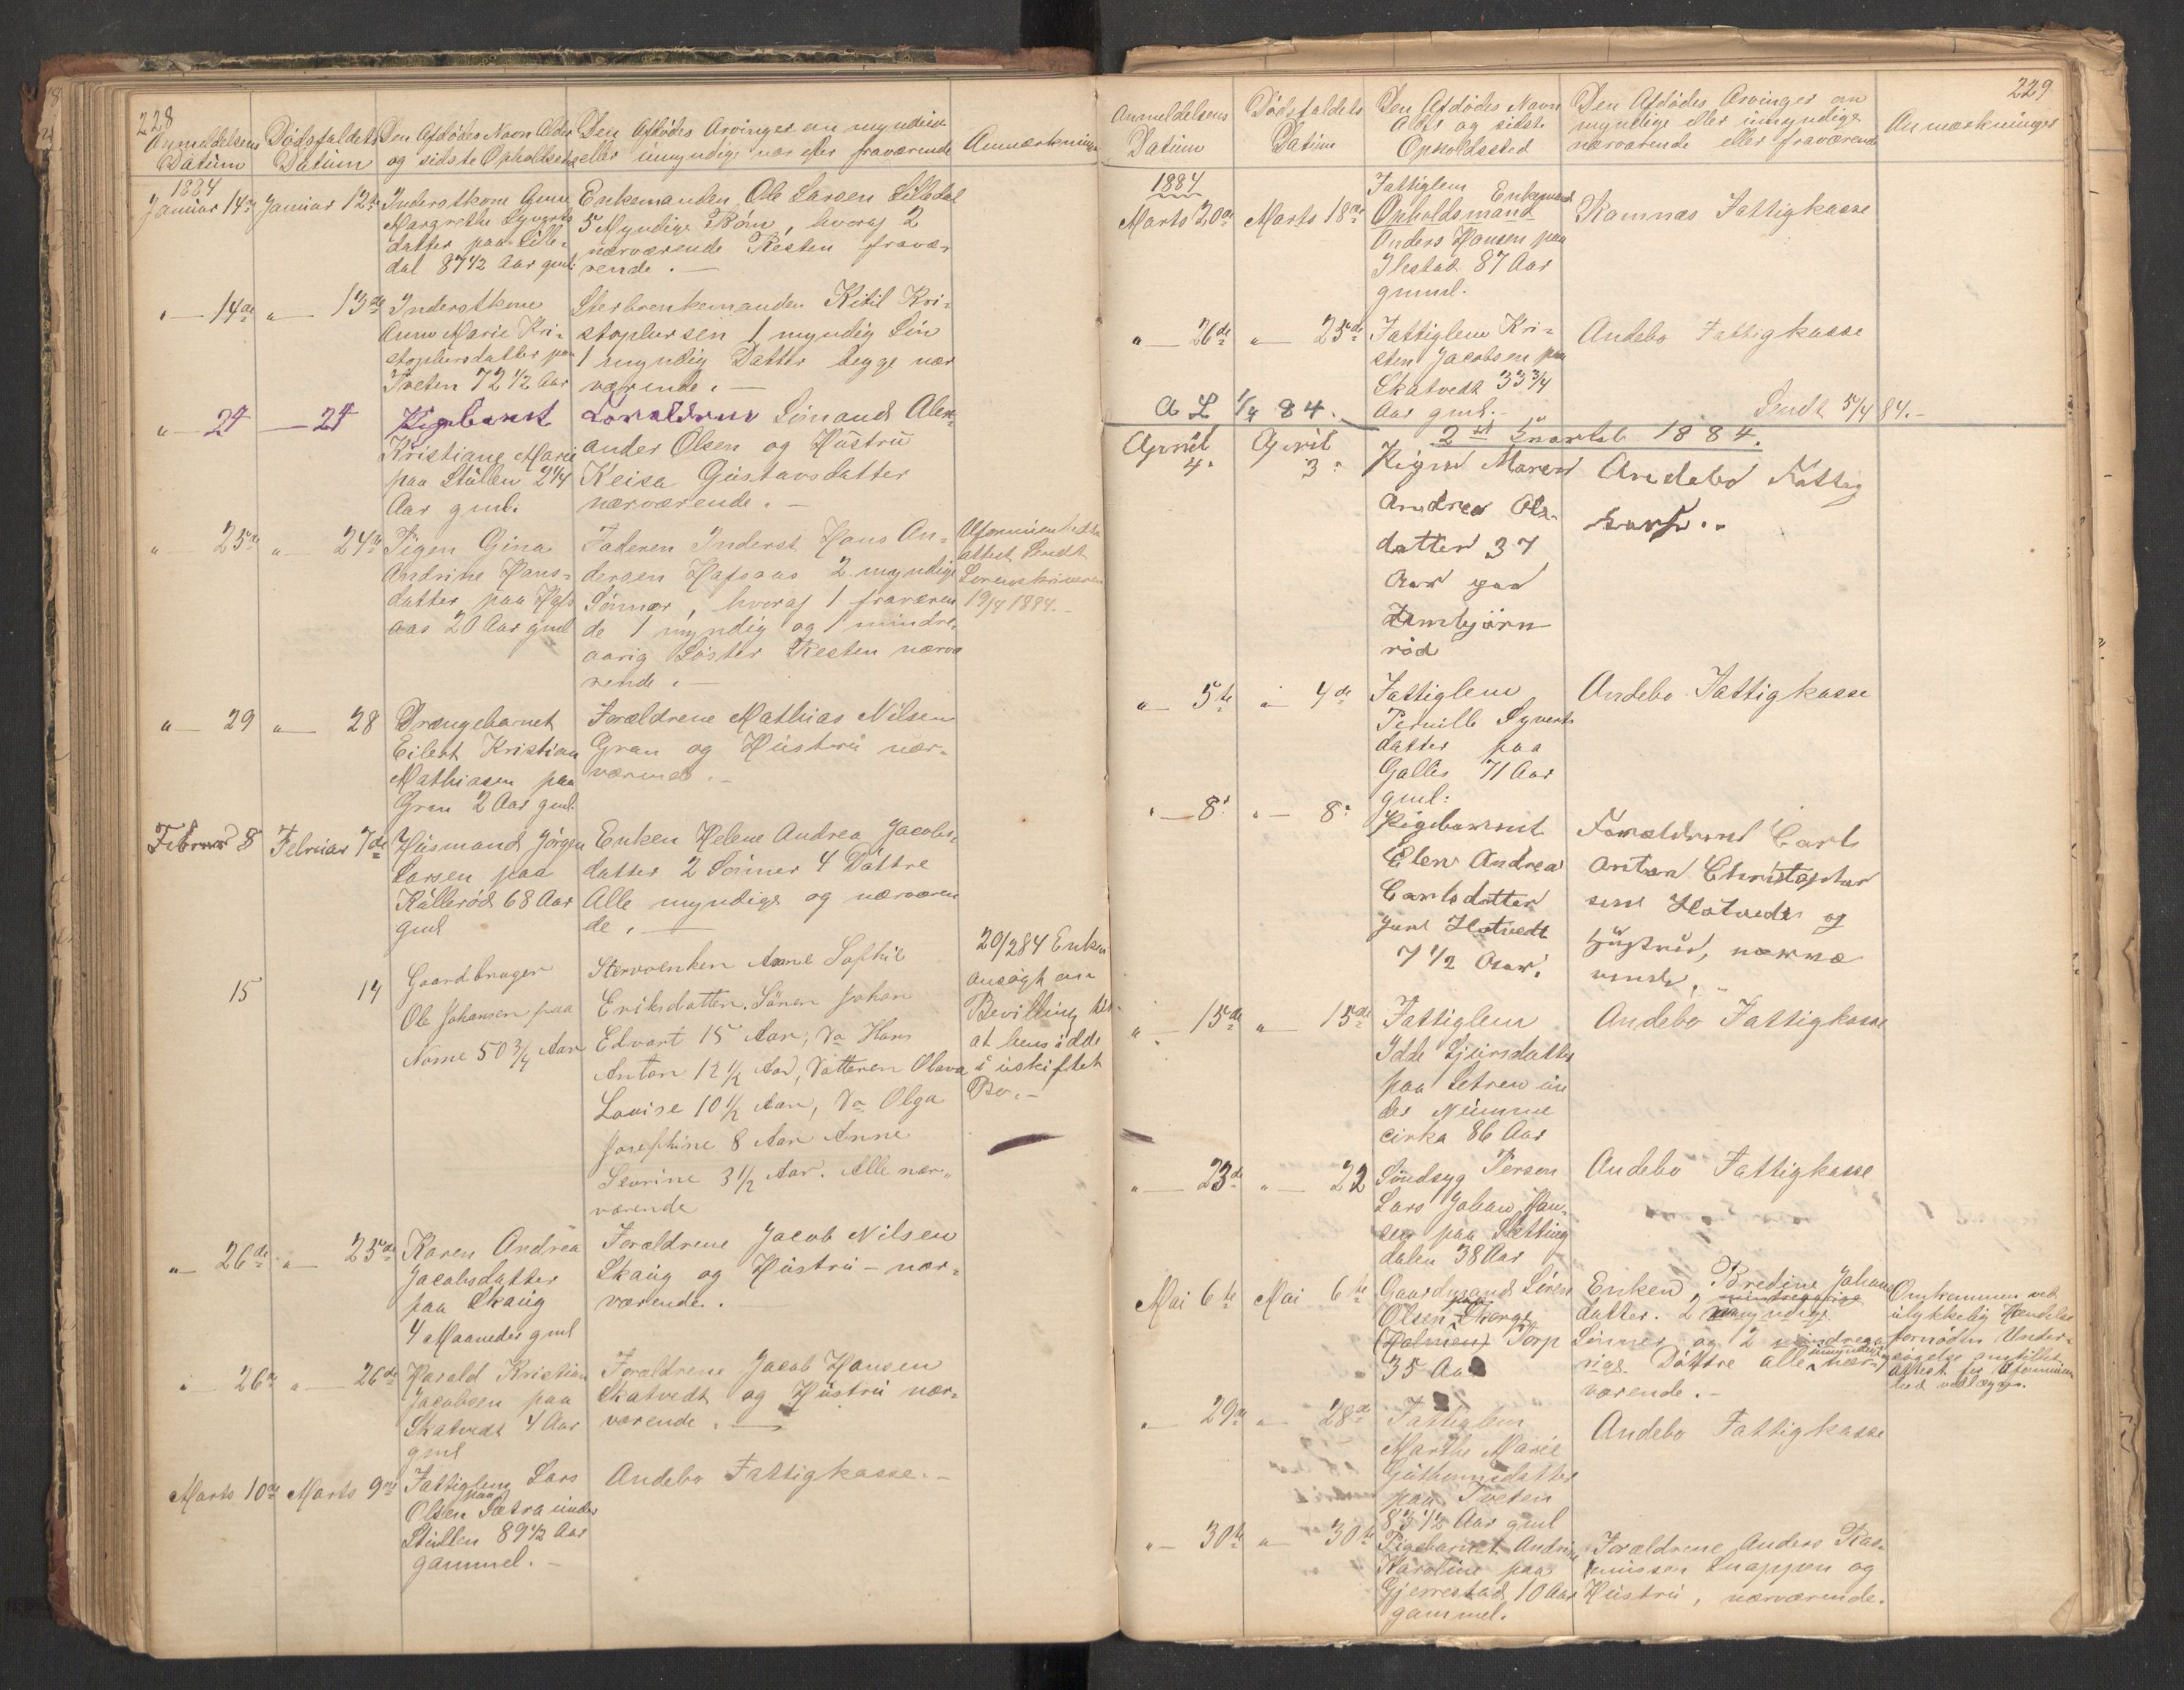 228
Anmeldelsens Datum
Dødsfaldets Datum
Den Afdødes Navn Alder og sidste Opholdsted
Den Afdødes Arvinger om myndige eller umyndige nær eller fraværende
Anmærkninger
1884
Januar 14de Januar 12te
Inderstkone Anne
Margrethe Syverts
datter paa Lille-
dal 87 1/2 Aar gml.
Enkemanden Ole Larsen Lilledal
5 Myndige Börn, hvoraf 2
nærværende Resten fravæ-
rende. —
" — 14de " — 13de
Inderstkone
Anne Marie Kri-
stophersdatter paa
Tveten 72 1/2 Aar
Sterboenkemanden Kitil Kri-
stophersen 1 myndig Sön
1 myndig Datter begge nær
værende. —
" — 24 — 24
Pigebarnet
Kristiane Marie
paa Stüllen 2 1/4
Aar gml.
Forældrene Sömand Alex-
ander Olsen og Hüstrü
Keisa Güstavsdatter
nærværende. —
" — 25de " — 24de
Pigen Gina
Andrine Hans-
datter paa Hafs
aas 20 Aar gml
Faderen Inderst Hans An-
dersen Hafsaas 2 myndige
Sönner, hvoraf 1 fraværen
de 1 myndig og 1 mindre-
aarig Söster Resten nærvæ
rende. —
attest Sendt
Sorenskriveren
19/4 1884. —
" — 29 " — 28
Drængebarnet
Eilert Kristian
Mathiasen paa
Gran 2 Aar gml.
Forældrene Mathias Nilsen
Gran og Hüstrü nær-
værende. —
Februar 8 Februar 7de
Hüsmand Jörgen
Larsen paa
Kölleröd 68 Aar
gml
Enken Helene Andrea Jacobs-
datter 2 Sönner 4 Döttre
Alle myndige og nærværen
de. —
15 14
Gaardbruger
Ole Johansen paa
Nome 50 3/4 Aar
Stervoenken Anne Sophie
Eriksdatter. Sönen Johan
Edvart 15 Aar, Do Hans
Anton 12 1/2 Aar, Datteren Olava
Lovise 10 1/2 Aar, Do Olga
Josephine 8 Aar Anne
Sevrine 3 1/2 Aar. Alle nær-
værende
20/2 84 Enken
ansögt om
Bevilling til
at hensidde
i uskiftet
Bo. —
" — 26de " — 25de
Karen Andrea
Jacobsdatter
paa Skaüg
4 Maaneder gml
Forældrene Jacob Nilsen
Skaüg og Hüstrü - nær-
værende.
" 26de " — 26de
Harald Kristian
Jacobsen paa
Skatvedt 4 Aar
gml
Forældrene Jacob Hansen
Skatvedt og Hüstrü nær-
værende. —
Marts 10de Marts 9de
Fattiglem Lars
Olsen paa Sætra ünder
Stüllen 89 1/2 Aar
gammel. —
Andebo Fattigkasse. —
229
Anmeldelsens Datum
Dødsfaldets Datum
Den Afdødes Navn Alder og sidste Opholdssted
Den Afdødes Arvinger om myndige eller umyndige nærværende eller fraværende
Anmærkninger
1884
Marts 20de Marts 18de
Fattiglem Enkemand
Opholdsmand
Anders Hansen paa
Ilestad 87 Aar
gmml.
Ramnæs Fattigkasse
" — 26de " — 25de
Fattiglem Kri-
sten Jacobsen paa
Skatvedt 33 3/4
Aar gml. —
Andebo Fattigkasse
A L 1/4 84.
Sendt 5/4 84. —
2det Kvartal 1884.
April 4. April 3.
Pigen Maren
Andrea Ols-
datter 37
Aar paa
Jembjörn
röd
Andebo Fattig
kasse. -
" — 5te " 4de
Fattiglem
Pernille Syverts
datter paa
Gallis 71 Aar
gml:
Andebo Fattigkasse
" — 8. " — 8.
Pigebarnet
Elen Andrea
Carlsdatter
paa Hotvedt
7 1/2 Aar.
Forældrene Carl
Anton Christopher
sen Hotvedt og
Hüstrü, nærvæ
rende. -
" — 15de " — 15de
Fattiglem
Idde Sjürsdatter
paa Setren ün
der Nümme
cirka 86 Aar
Andebo Fattigkasse
" — 23de " — 22
Sindsyg Person
Lars Johan Han-
sen paa Sletting
dalen 38 Aar
Andebo Fattigkasse
Mai 6te Mai 6te
Gaardmand Sören
Olsen
(Holmen) Torp
35 Aar
Enken, Bredine Johans
datter. 2 umyndige
Sönner og 2 mindreaa
rige Döttre alle nær-
værende. —
Omkommen ved
ulykkelig Hændelse
fornöden Under-
sögelse
" — 29de " — 28de
Fattiglem
Marthe Marie
Güthormsdatter
paa Tveten
83 1/2 Aar gml
Andebo Fattigkasse
" — 30te " — 30te
Pigebarnet Andrine
Karoline paa
Gjerrestad 10 Aar
gammel.
Forældrene Anders Ras-
müssen Snappen og
Hüstrü, nærværende.